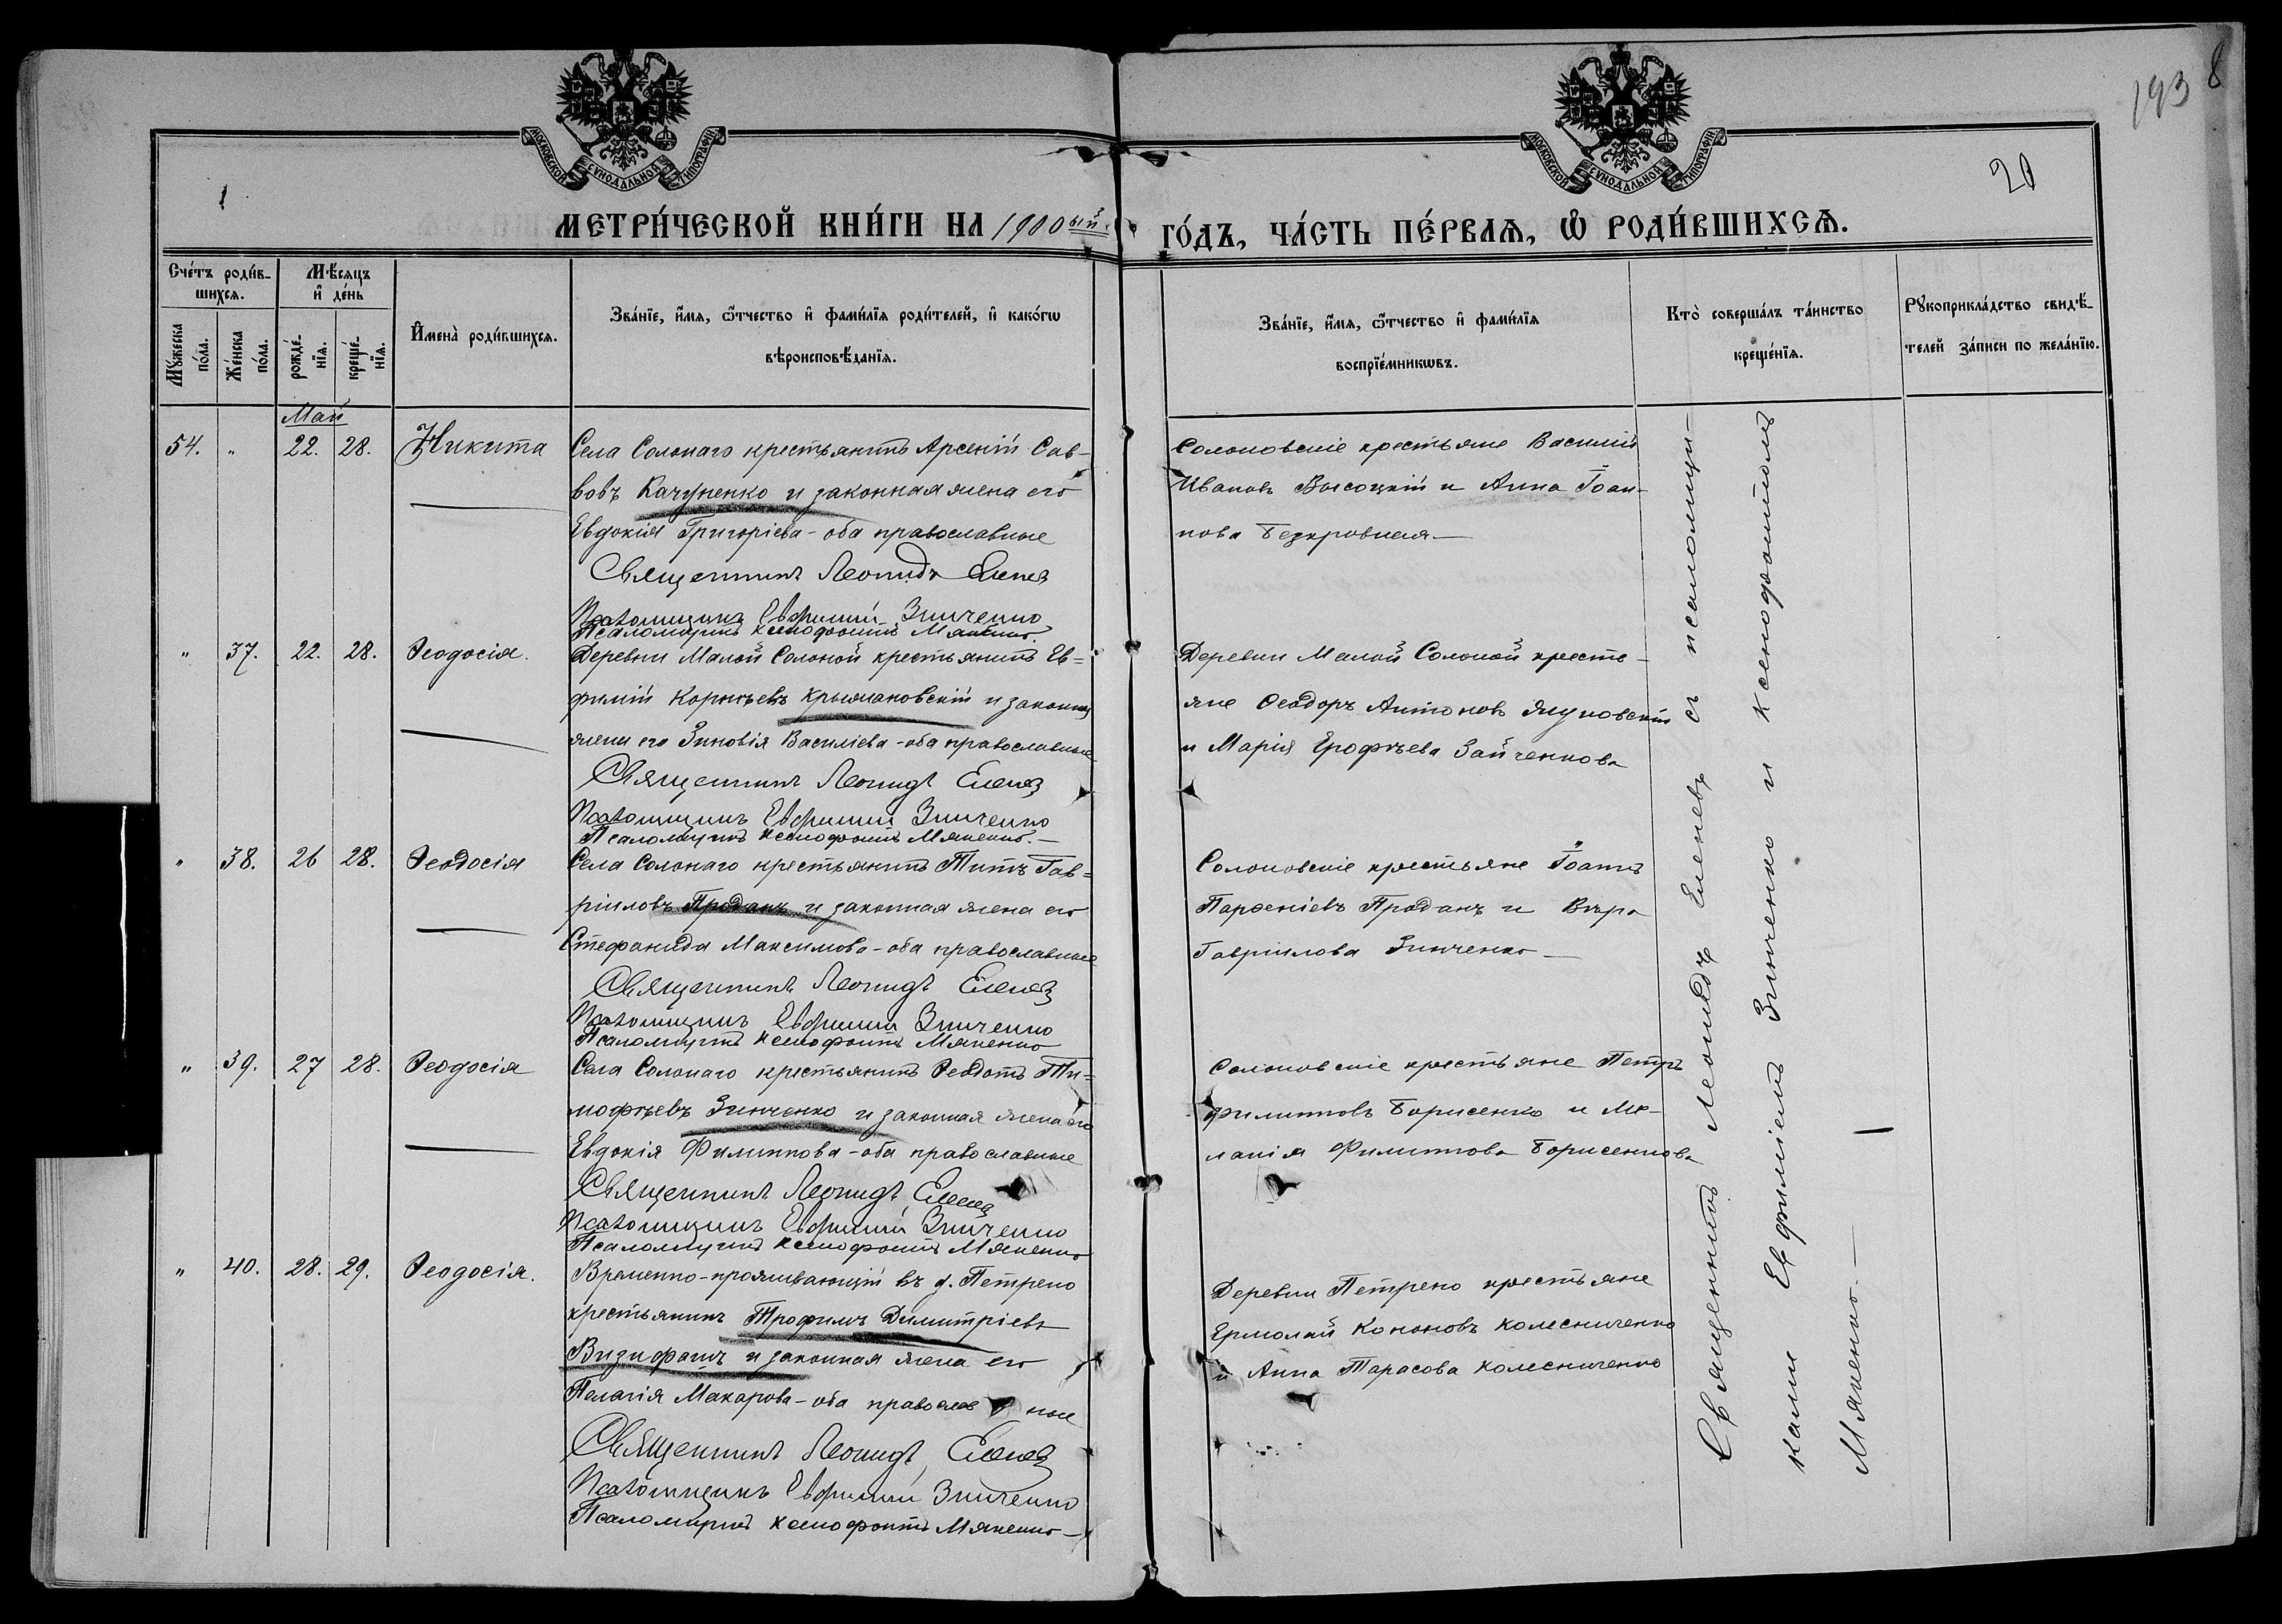 193 8
МОСКОВСКОЙ СУНОДАЛЬНОЙ ТИПОГРАФІИ
МОСКОВСКОЙ СУНОДАЛЬНОЙ ТИПОГРАФІИ
20
МЕТРИ́ЧЕСКОЙ КНИ́ГИ НА 1900ый
ГО́ДЪ, ЧА́СТЬ ПЕ́РВАѦ, Ѡ҆ РОДИ́ВШИХСѦ.
Сче́тъ роди́в-
шихсѧ.
Мꙋ́жеска по́ла.
Же́нска по́ла.
Мѣ́сѧцъ
и҆ де́нь
рожде́-нїѧ.
креще́-нїѧ.
И҆мена̀ роди́вшихсѧ.
Зва́нїе, и҆́мѧ, ѻ҆́тчество и҆ фами́лїѧ роди́телей, и҆ како́гѡ
вѣроисповѣ́данїѧ.
Зва́нїе, и҆́мѧ, ѻ҆́тчество и҆ фами́лїѧ
воспрїе́мникѡвъ.
Кто̀ соверша́лъ та́инство
креще́нїѧ.
Рꙋкоприкла́дство свидѣ́-
телей за́писи по жела́нїю.
Май
54. " 22. 28. Никита
Села Солонаго крестьянинъ Арсеній Сав-
вовъ Качуненко и законная жена его
Евдокія Григоріева - оба православные
Священникъ Леонидъ Еленев
Псаломщикъ Евфимий Зинченко
Псаломщикъ Ксенофонтъ Мякенко
Солоновскіе крестьяне Василій
Ивановъ Высоцкій и Анна Іоан-
нова Безкровная
" 37. 22. 28. Ѳеодосія.
Деревни Малой Солоной крестьянинъ Ев=
фимій Корнѣевъ Крыжановскій и законная
жена его Зиновія Василіева - оба православные
Священникъ Леонидъ Еленев
Псаломщикъ Евфимий Зинченко
Псаломщикъ Ксенофонтъ Мякенко.
Деревни Малой Солоной кресть-
яне Ѳеодоръ Антоновъ Якуковскій
и Марія Ерофѣева Зайченкова
" 38. 26 28. Ѳеодосія
Села Солонаго крестьянинъ Титъ Гав=
рииловъ Проданъ и законная жена его
Стефанида Максимова - оба православные
Священникъ Леонидъ Еленев
Псаломщикъ Евфимий Зинченко
Псаломщикъ Ксенофонтъ Мякенко
Солоновскіе крестьяне Іоаннъ
Парѳеніевъ Проданъ и Вѣра
Гавриилова Зинченко
" 39. 27 28. Ѳеодосія
Села Солонаго крестьянинъ Ѳеодотъ Ти=
мофѣевъ Зинченко и законная жена его
Евдокія Филиппова - оба православные
Священникъ Леонидъ Еленев
Псаломщикъ Евфимий Зинченко
Псаломщикъ Ксенофонтъ Мякенко
Солоновскіе крестьяне Петръ
Филипповъ Борисенко и Ме-
ланія Филиппова Борисенкова
" 40. 28. 29. Ѳеодосія.
Временно-проживающій въ д. Петрено
крестьянинъ Трофимъ Димитріевъ
и законная жена его
Пелагія Макарова - оба православные
Священникъ Леонидъ Еленев
Псаломщикъ Евфимий Зинченко
Псаломщикъ Ксенофонтъ Мякенко
Деревни Петрено крестьяне
Ермолай Кононовъ Колесниченко
и Анна Тарасова Колесниченко
Священникъ Леонидъ Еленевъ съ псаломщи-
ками Евфиміемъ Зинченко и Ксенофонтомъ
Мякенко.